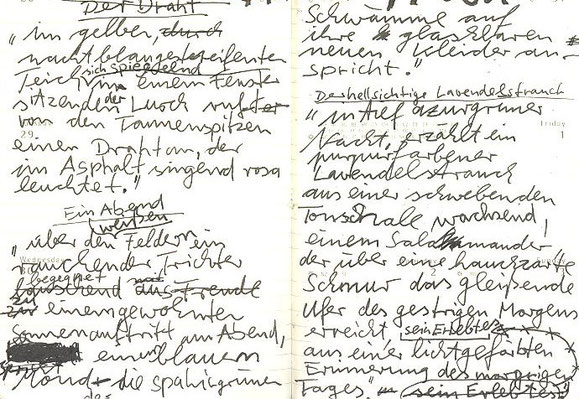 Der Draht
"im gelber, durch
nachtblaugestreiften
Teich sich spiegelnd
in einem Fenster
sitzenden Lurch ruft der
von den Tannenspitzen
29.
einen Draht an, der
im Asphalt singend rosa
leuchtet."
Ein Abend
werben
"über den Feldern ein
Wednesday
rauchender Trichter
begegnet
zu einem gewohnten
Sonnenauftritt am Abend,
einem blauen
Mond die spahngrünen
Schwämme auf
ihre glasklaren
neuen Kleider an-
spricht."
Der hellsichtige Lavendelstrauch
"in tief azurgrüner
Friday
Nacht, erzählt ein
1
purpurfarbener
Lavendelstrauch
aus einer schwebenden
Tonschale wachsend,
einem Salamander
der über eine hauchzarte
Schnur das gleißende
Ufer des gestrigen Morgens
erreicht sein Erlebtes
aus einer lichtgefärbten
Erinnerung des morgigen
Tages." sein Erlebtes